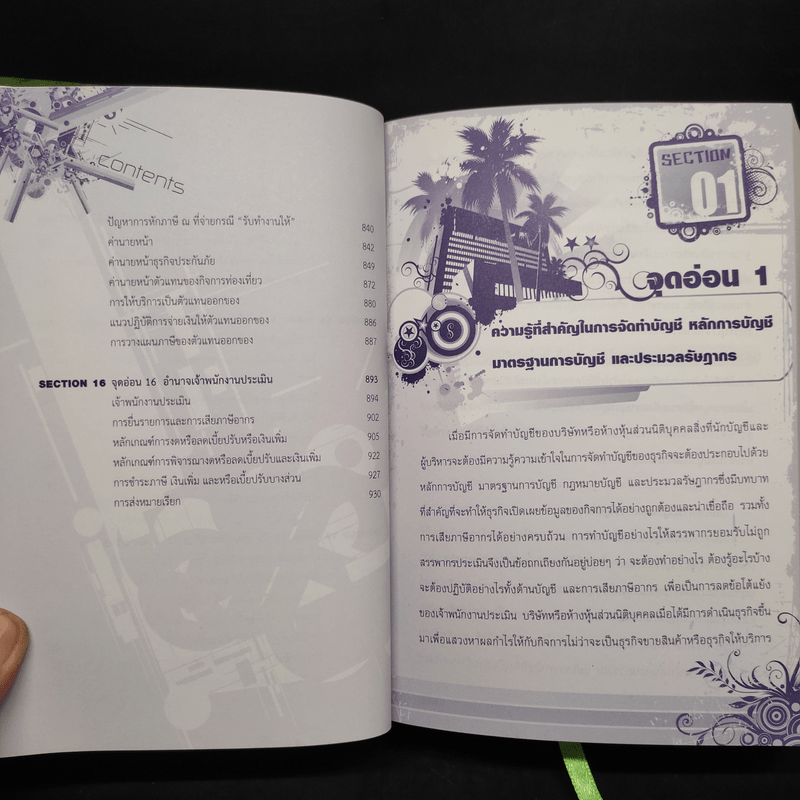 contents
ปัญหาการหักภาษี ณ ที่จ่ายกรณี "รับทำงานให้" 840
ค่านายหน้า 842
ค่านายหน้าธุรกิจประกันภัย 849
ค่านายหน้าตัวแทนของกิจการท่องเที่ยว 872
การให้บริการเป็นตัวแทนออกของ 880
แนวปฏิบัติการจ่ายเงินให้ตัวแทนออกของ 886
การวางแผนภาษีของตัวแทนออกของ 887
SECTION 16 จุดอ่อน 16 อำนาจเจ้าพนักงานประเมิน 893
เจ้าพนักงานประเมิน 894
การยื่นรายการและการเสียภาษีอากร 902
หลักเกณฑ์การงดหรือลดเบี้ยปรับหรือเงินเพิ่ม 905
หลักเกณฑ์การพิจารณางดหรือลดเบี้ยปรับและเงินเพิ่ม 922
การชำระภาษี เงินเพิ่ม และหรือเบี้ยปรับบางส่วน 927
การส่งหมายเรียก 930
SECTION
01
จุดอ่อน 1
ความรู้ที่สำคัญในการจัดทำบัญชี หลักการบัญชี
มาตรฐานการบัญชี และประมวลรัษฎากร
เมื่อมีการจัดทำบัญชีของบริษัทหรือห้างหุ้นส่วนนิติบุคคลสิ่งที่นักบัญชีและ
ผู้บริหารจะต้องมีความรู้ความเข้าใจในการจัดทำบัญชีของธุรกิจจะต้องประกอบไปด้วย
หลักการบัญชี มาตรฐานการบัญชี กฎหมายบัญชี และประมวลรัษฎากรซึ่งมีบทบาท
ที่สำคัญที่จะทำให้ธุรกิจเปิดเผยข้อมูลของกิจการได้อย่างถูกต้องและน่าเชื่อถือ รวมทั้ง
การเสียภาษีอากรได้อย่างครบถ้วน การทำบัญชีอย่างไรให้สรรพากรยอมรับไม่ถูก
สรรพากรประเมินจึงเป็นข้อถกเถียงกันอยู่บ่อยๆ ว่า จะต้องทำอย่างไร ต้องรู้อะไรบ้าง
จะต้องปฏิบัติอย่างไรทั้งด้านบัญชี และการเสียภาษีอากร เพื่อเป็นการลดข้อโต้แย้ง
ของเจ้าพนักงานประเมิน บริษัทหรือห้างหุ้นส่วนนิติบุคคลเมื่อได้มีการดำเนินธุรกิจขึ้น
มาเพื่อแสวงหาผลกำไรให้กับกิจการไม่ว่าจะเป็นธุรกิจขายสินค้าหรือธุรกิจให้บริการ